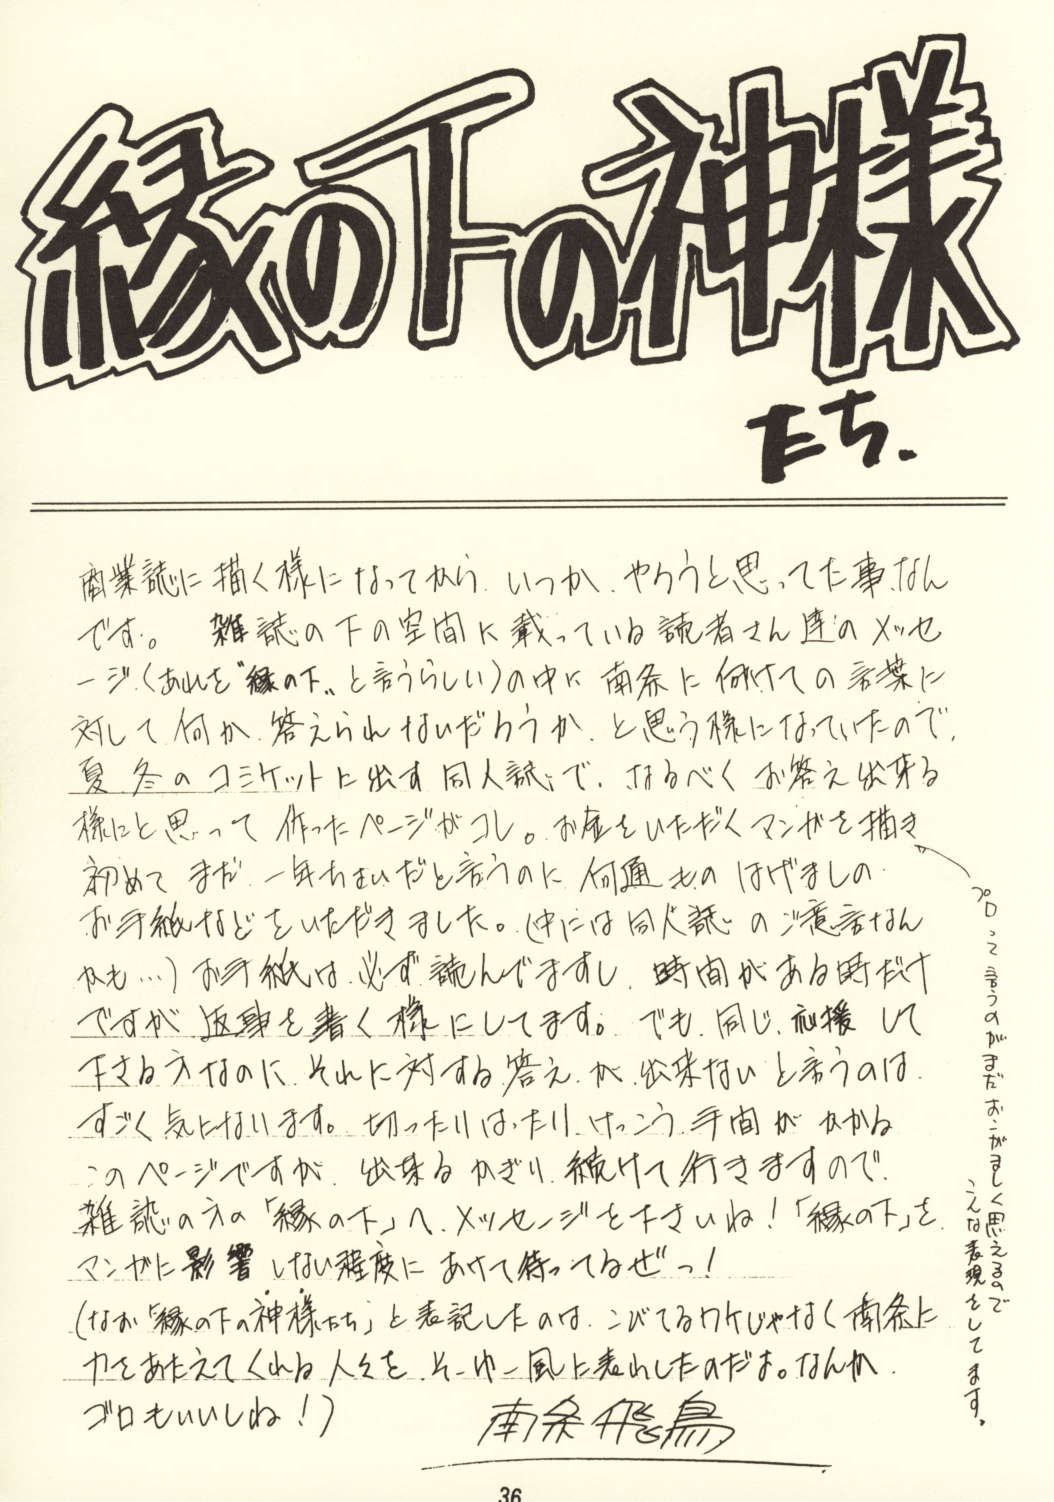 縁の下の神様
たち.
商業誌に描く様になってから、いつか、やろうと思ってた事なん
です。 雑誌の下の空間に載っている読者さん達のメッセ
ージ(あれを"縁の下"と言うらしい)の中に南条に向けての言葉に
対して何か答えられないだろうか、と思う様になっていたので、
夏、冬のコミケットに出す同人誌で、なるべくお答え出来る
様にと思って作ったページがコレ。お金をいただくマンガを描き
初めてまだ一年ちょいだと言うのに何通ものはげましの
お手紙などをいただきました。(中には同人誌のご意見なん
かも…)お手紙は必ず読んでますし、時間がある時だけ
ですが返事を書く様にしてます。でも、同じ、応援して
下さる方なのに、それに対する答えが出来ないと言うのは
すごく気になります。切ったりはったりけっこう手間がかかる
このページですが、出来るかぎり続けて行きますので、
雑誌の方の「縁の下」へ、メッセージを下さいね!「縁の下」を
マンガに影響しない程度にあけて待ってるぜっ!
(なお「縁の下の神様たち」と表記したのは、こびてるワケじゃなく南条に
力をあたえてくれる人々を、そーゆー風に表わしたのだよ。なんか
ゴロもいいしね!)
南条飛鳥
プロって言うのがまだおこがましく思えるので
こんな表現をしてます。
36